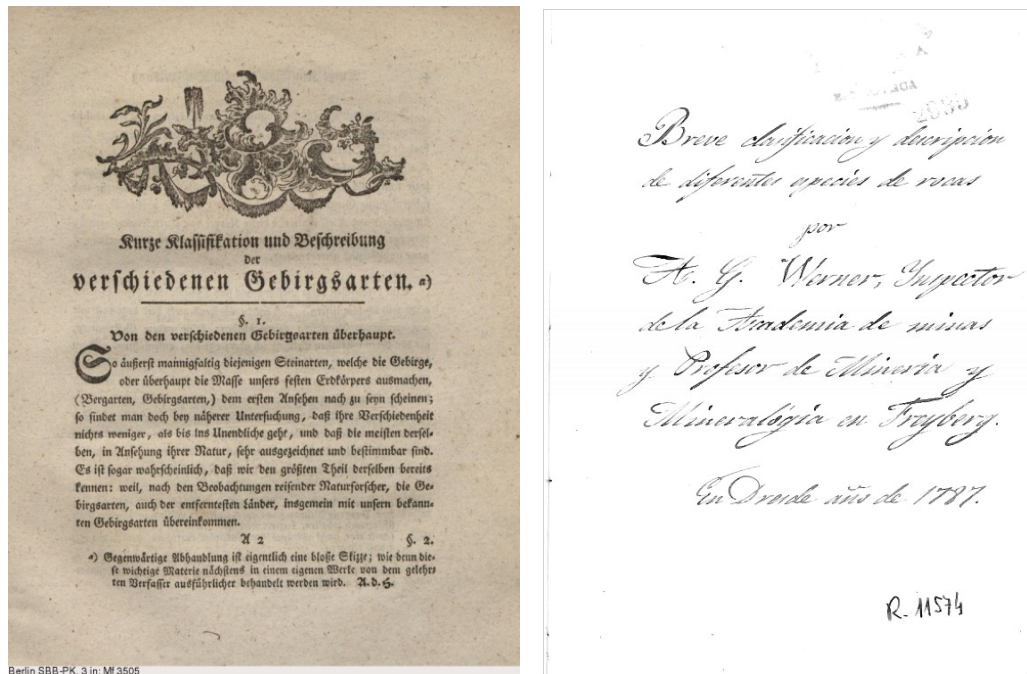 Kurze Klassifikation und Beschreibung
der
verschiedenen Gebirgsarten. a)
§. 1.
Von den verschiedenen Gebirgsarten überhaupt.
So äußerst mannigfaltig diejenigen Steinarten, welche die Gebirge,
oder überhaupt die Masse unsers festen Erdkörpers ausmachen,
(Bergarten, Gebirgsarten,) dem ersten Ansehen nach zu seyn scheinen;
so findet man doch bey näherer Untersuchung, daß ihre Verschiedenheit
nichts weniger, als bis ins Unendliche geht, und daß die meisten dersel-
ben, in Ansehung ihrer Natur, sehr ausgezeichnet und bestimmbar sind.
Es ist sogar wahrscheinlich, daß wir den größten Theil derselben bereits
kennen: weil, nach den Beobachtungen reisender Naturforscher, die Ge-
birgsarten, auch der entferntesten Länder, insgemein mit unsern bekann-
ten Gebirgsarten übereinkommen.
A 2 §. 2.
a) Gegenwärtige Abhandlung ist eigentlich eine bloße Skizze; wie denn die-
se wichtige Materie nächstens in einem eigenen Werke von dem gelehr-
ten Verfasser ausführlicher behandelt werden wird. A. d. H.
Berlin SBB-PK, 3 in: Mf 3505
2039
Breve clasificacion y descripcion
de diferentes especies de rocas
por
A. G. Werner, Inspector
de la Academia de minas
y Profesor de Mineria y
Mineralógia en Freyberg.
En Dresde año de 1787.
R. 11574